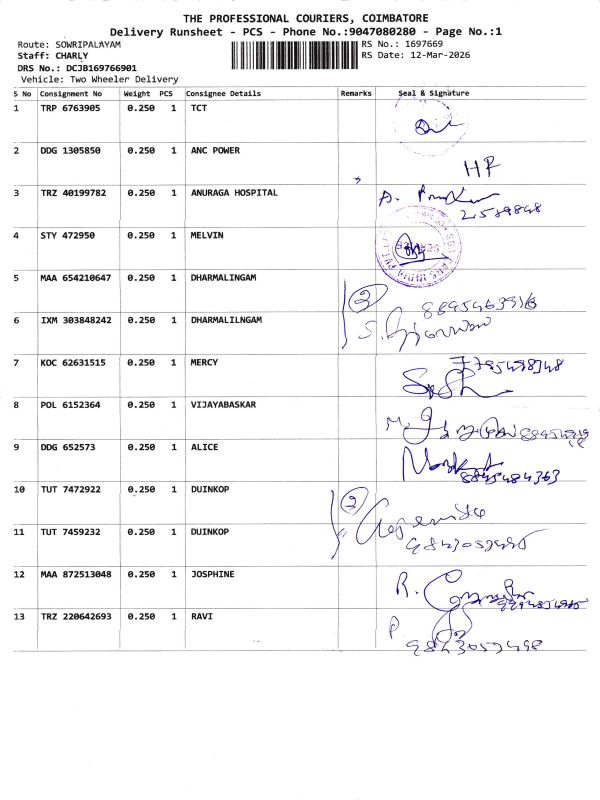 THE PROFESSIONAL COURIERS, COIMBATORE
Delivery Runsheet - PCS - Phone No.:9047080280 - Page No.:1
Route: SOWRIPALAYAM
RS No.: 1697669
Staff: CHARLY
RS Date: 12-Mar-2026
DRS No.: DCJB169766901
Vehicle: Two Wheeler Delivery
S No Consignment No Weight PCS Consignee Details Remarks Seal & Signature
1 TRP 6763905 0.250 1 TCT
2 DDG 1305850 0.250 1 ANC POWER
HR
3 TRZ 40199782 0.250 1 ANURAGA HOSPITAL
4 STY 472950 0.250 1 MELVIN
5 MAA 654210647 0.250 1 DHARMALINGAM
2
6 IXM 303848242 0.250 1 DHARMALILNGAM
7 KOC 62631515 0.250 1 MERCY
8 POL 6152364 0.250 1 VIJAYABASKAR
9 DDG 652573 0.250 1 ALICE
8845484363
10 TUT 7472922 0.250 1 DUINKOP
2
11 TUT 7459232 0.250 1 DUINKOP
12 MAA 872513048 0.250 1 JOSPHINE
R.
13 TRZ 220642693 0.250 1 RAVI
P